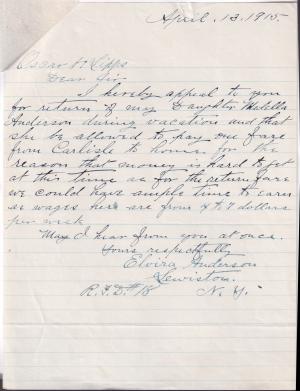 April, 13, 1915
Oscar H Lipps
Dear Sir
I hereby appeal to you
for return of my Daughter
Anderson during vacation and that
she be allowed to pay one fare
from Carlisle to home for the
reason that money is hard to get
at this time as for the return fare
we could have ample time to earn
as wages here are from 4 to 7 dollars
per week
May I hear from you at once.
Yours respectfully
Elvira Anderson
Lewiston
R.F.D. # 18 N. Y.